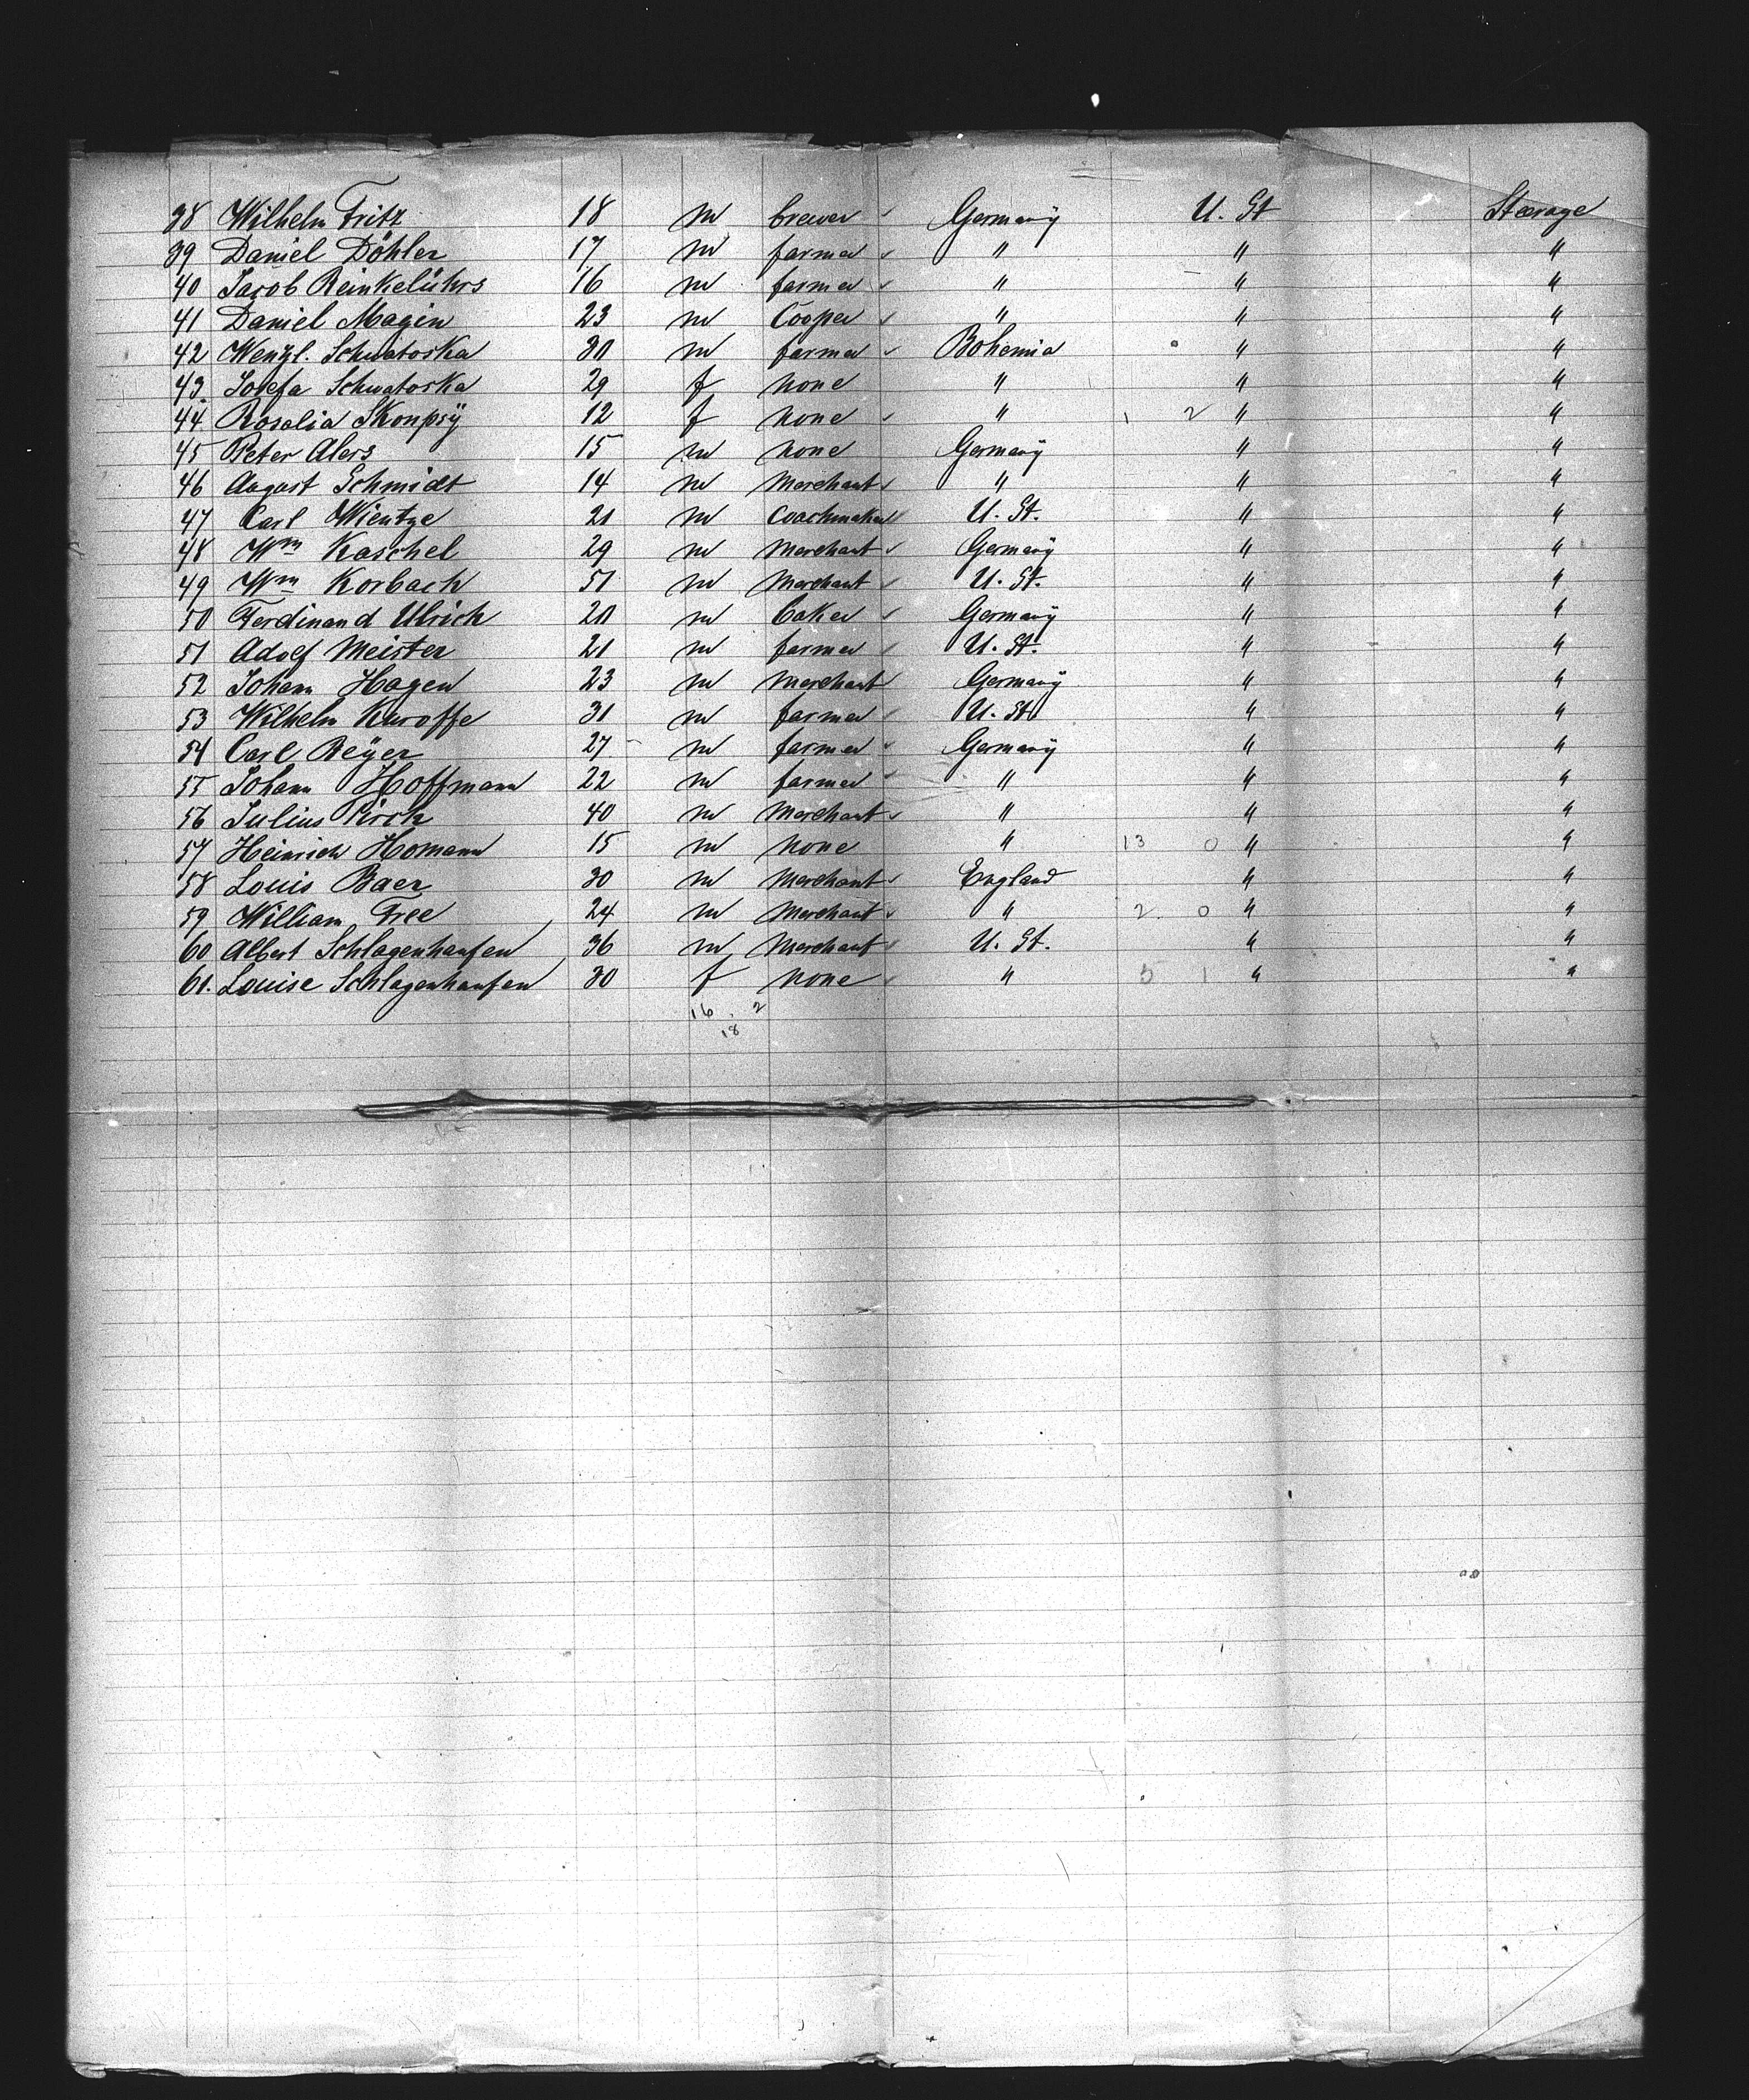 38 Wilhelm Fritz 18 m brewer Germany U. St Steerage
39 Daniel Döhler 17 m farmer " " "
40 Jacob Reinkelührs 16 m farmer " " "
41 Daniel Magin 23 m Cooper " " "
42 Wenzl. Schwatoska 30 m farmer Bohemia " "
43. Josefa Schwatoska 29 f none " " "
44. Rosalia Skonpsÿ 12 f none " 1 2 " "
45 Peter Alers 15 m none Germany " "
46 August Schmidt 14 m Merchant " " "
47 Carl Wientge 21 m Coachmaker U. St. " "
48 Wm Kaschel 29 m Merchant Germany " "
49 Wm Korbach 51 m Merchant U. St. " "
50 Ferdinand Ulrich 20 m baker Germany " "
51 Adolf Meister 21 m farmer U. St. " "
52 Johann Hagen 23 m Merchant Germany " "
53 Wilhelm Karoffe 31 m farmer U. St. " "
54 Carl Beÿer 27 m farmer Germany " "
55 Johann Hoffmann 22 m farmer " " "
56 Julius Pirch 40 m Merchant " " "
57 Heinrich Homann 15 m none " 13 0 " "
58 Louis Baer 30 m Merchant England " "
59 William Free 24 m Merchant " 2. 0 " "
60 Albert Schlagenhaufen 36 m Merchant U. St. " "
61. Louise Schlagenhaufen 30 f none " 5 1 " "
16. 2
18